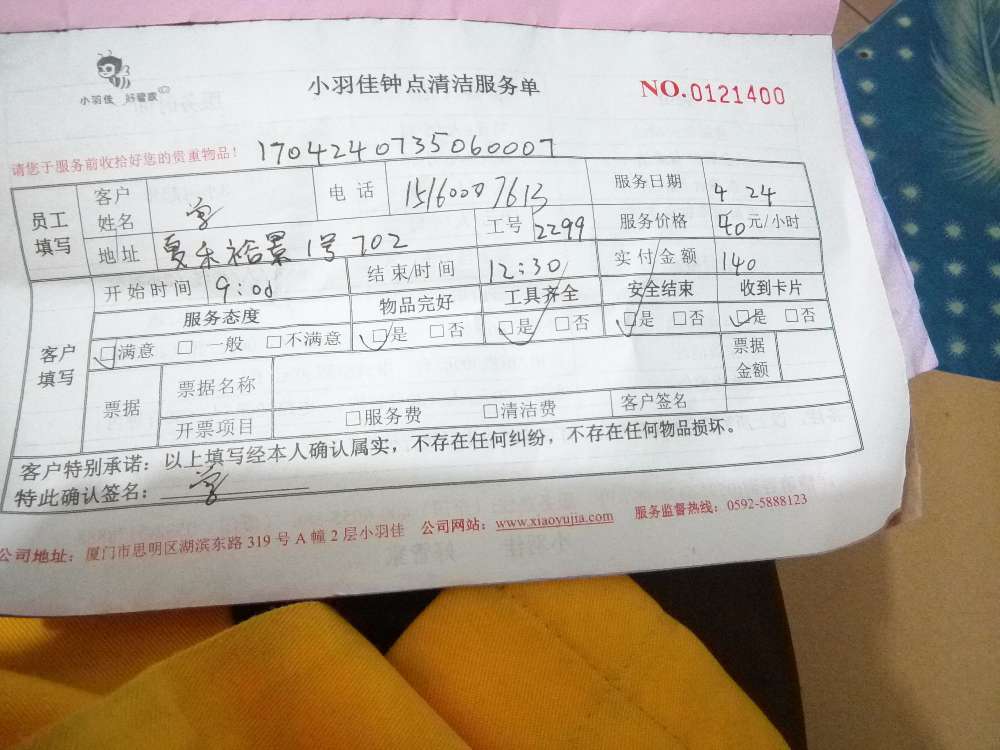 小羽佳 好管家
小羽佳钟点清洁服务单
NO.0121400
请您于服务前收拾好您的贵重物品！ 1704240735060007
员工填写 客户姓名 电话 服务日期 4 24
地址 1号702 工号 2299 服务价格 40元/小时
客户填写 开始时间 9:00 结束时间 12:30 实付金额 140
服务态度 物品完好 工具齐全 安全结束 收到卡片
☑满意 □一般 □不满意 ☑是 □否 ☑是 □否 ☑是 □否 ☑是 □否
票据 票据名称 票据金额
开票项目 □服务费 □清洁费 客户签名
客户特别承诺：以上填写经本人确认属实，不存在任何纠纷，不存在任何物品损坏。
特此确认签名：
公司地址：厦门市思明区湖滨东路319号A幢2层小羽佳 公司网站：www.xiaoyujia.com 服务监督热线：0592-5888123